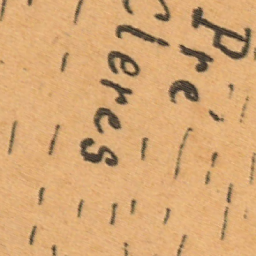 Pre'
cleres